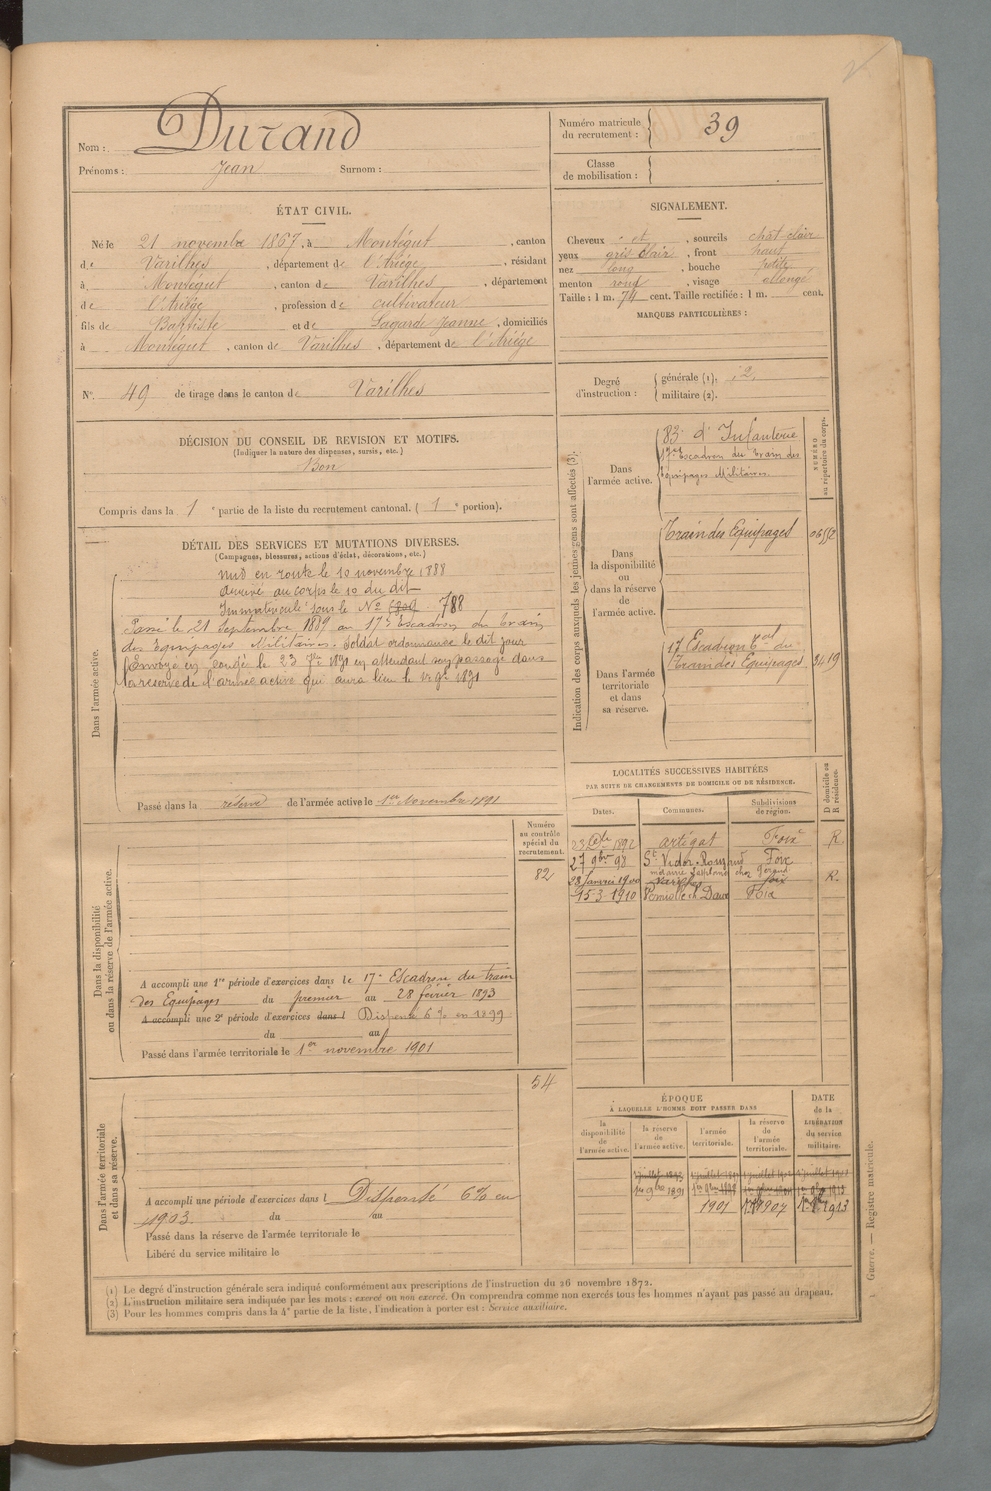 Nom : Durand
Prénoms : Jean Surnom :
Numéro matricule
du recrutement : 39
Classe
de mobilisation :
ÉTAT CIVIL.
Né le 21 novembre 1867, à Montégut, canton
de Varilhes, département de l'Ariége, résidant
à Montégut, canton de Varilhes, département
de l'Ariége, profession de cultivateur
fils de Baptiste et de Lagarde Jeanne, domiciliés
à Montégut, canton de Varilhes, département de l'Ariége
SIGNALEMENT.
Cheveux et, sourcils chat clair
yeux gris clair, front haut
nez long, bouche petite
menton rond, visage allongé
Taille : 1 m. 74 cent. Taille rectifiée : 1 m. cent.
MARQUES PARTICULIÈRES :
N° 49 de tirage dans le canton de Varilhes
Degré
d'instruction :
générale (1). 2
militaire (2).
DÉCISION DU CONSEIL DE REVISION ET MOTIFS.
(Indiquer la nature des dispenses, sursis, etc.)
Bon
Compris dans la 1e partie de la liste du recrutement cantonal. (1e portion).
DÉTAIL DES SERVICES ET MUTATIONS DIVERSES.
(Campagnes, blessures, actions d'éclat, décorations, etc.)
Dans l'armée active.
Mis en route le 10 novembre 1888
Arrivé au corps le 10 du dit
Immatriculé sous le N° 788
Passé le 21 Septembre 1889 au 17e Escadron du Train
des Equipages Militaires. Soldat ordonnance le dit jour
Envoyé en congé le 23 7bre 1891 en attendant son passage dans
la réserve de l'armée active qui aura lieu le 1er 9bre 1891
Passé dans la réserve de l'armée active le 1er Novembre 1891
Indication des corps auxquels les jeunes gens sont affectés (3).
NUMÉRO
au répertoire du corps.
Dans
l'armée active.
83e d'Infanterie
17e Escadron du Train des
Equipages Militaires
Dans
la disponibilité
ou
dans la réserve
de
l'armée active.
Train des Equipages
Dans l'armée
territoriale
et dans
sa réserve.
17 Escadron du
Train des Equipages 3419
LOCALITÉS SUCCESSIVES HABITÉES
PAR SUITE DE CHANGEMENTS DE DOMICILE OU DE RÉSIDENCE.
Dates. Communes. Subdivisions
de région.
D domicile ou
R résidence.
23 1892 Artigat Foix R
27 9bre 98 St Victor-Rouzaud Foix
28 Janvier 1900 Varilhes Foix R
15-3-1910 Foix
Dans la disponibilité
ou dans la réserve de l'armée active.
Numéro
au contrôle
spécial du
recrutement.
82
A accompli une 1re période d'exercices dans le 17e Escadron du train
des Equipages du premier au 28 février 1893
A accompli une 2e période d'exercices dans l Dispensé 6 % en 1899
du au
Passé dans l'armée territoriale le 1er novembre 1901
Dans l'armée territoriale
et dans sa réserve.
54
A accompli une période d'exercices dans l Dispensé 6 % en
1903 du au
Passé dans la réserve de l'armée territoriale le
Libéré du service militaire le
ÉPOQUE
À LAQUELLE L'HOMME DOIT PASSER DANS
DATE
de la
LIBÉRATION
du service
militaire.
la
disponibilité
de
l'armée active.
la réserve
de
l'armée active.
l'armée
territoriale.
la réserve
de
l'armée
territoriale.
1er 9bre 1891
1901 1907 1913
(1) Le degré d'instruction générale sera indiqué conformément aux prescriptions de l'instruction du 26 novembre 1872.
(2) L'instruction militaire sera indiquée par les mots : exercé ou non exercé. On comprendra comme non exercés tous les hommes n'ayant pas passé au drapeau.
(3) Pour les hommes compris dans la 4e partie de la liste, l'indication à porter est : Service auxiliaire.
Guerre. — Registre matricule.